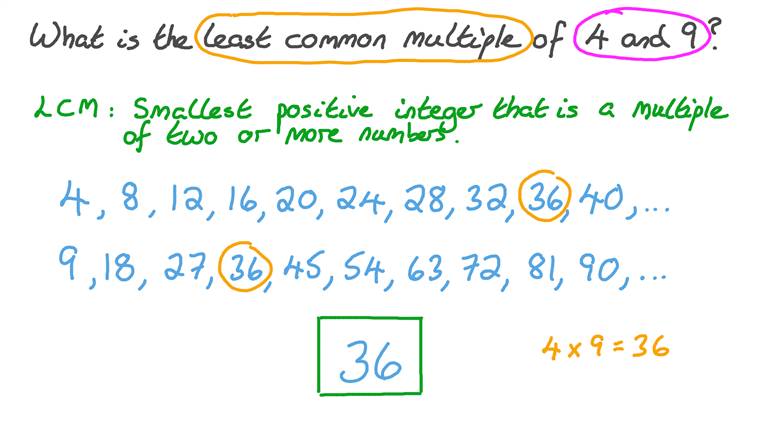 What is the least common multiple of 4 and 9?
LCM: Smallest positive integer that is a multiple
of two or more numbers.
4, 8, 12, 16, 20, 24, 28, 32, 36, 40, ...
9, 18, 27, 36, 45, 54, 63, 72, 81, 90, ...
36
4 × 9 = 36